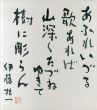 あふれいづる
歌あれば
山深くたづね
ゆきて
樹に彫らん
伊藤桂一